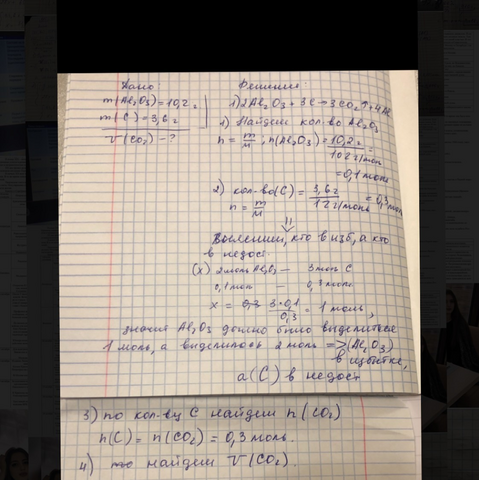 Дано:
m(Al₂O₃)=10,2 г
m(C)=3,6 г
V(CO₂)-?
Решение:
1) 2Al₂O₃ + 3C → 3CO₂↑ + 4Al
1) Найдём кол-во Al₂O₃
n = m/M ; n(Al₂O₃) = 10,2 г / 102 г/моль =
= 0,1 моль
2) кол-во(C) = 3,6 г / 12 г/моль = 0,3 моль
n = m/M
в изб, а кто
в недост.
(x) 2 моль Al₂O₃ — 3 моль C
0,1 моль — 0,3 моль
x = 3·0,1 / 0,3 = 1 моль,
значит Al₂O₃ должно было выделиться
1 моль, а выделилось 2 моль => (Al₂O₃)
в избытке,
а (C) в недост
3) по кол-ву C найдем n(CO₂)
n(C) = n(CO₂) = 0,3 моль.
4) найдем V(CO₂).